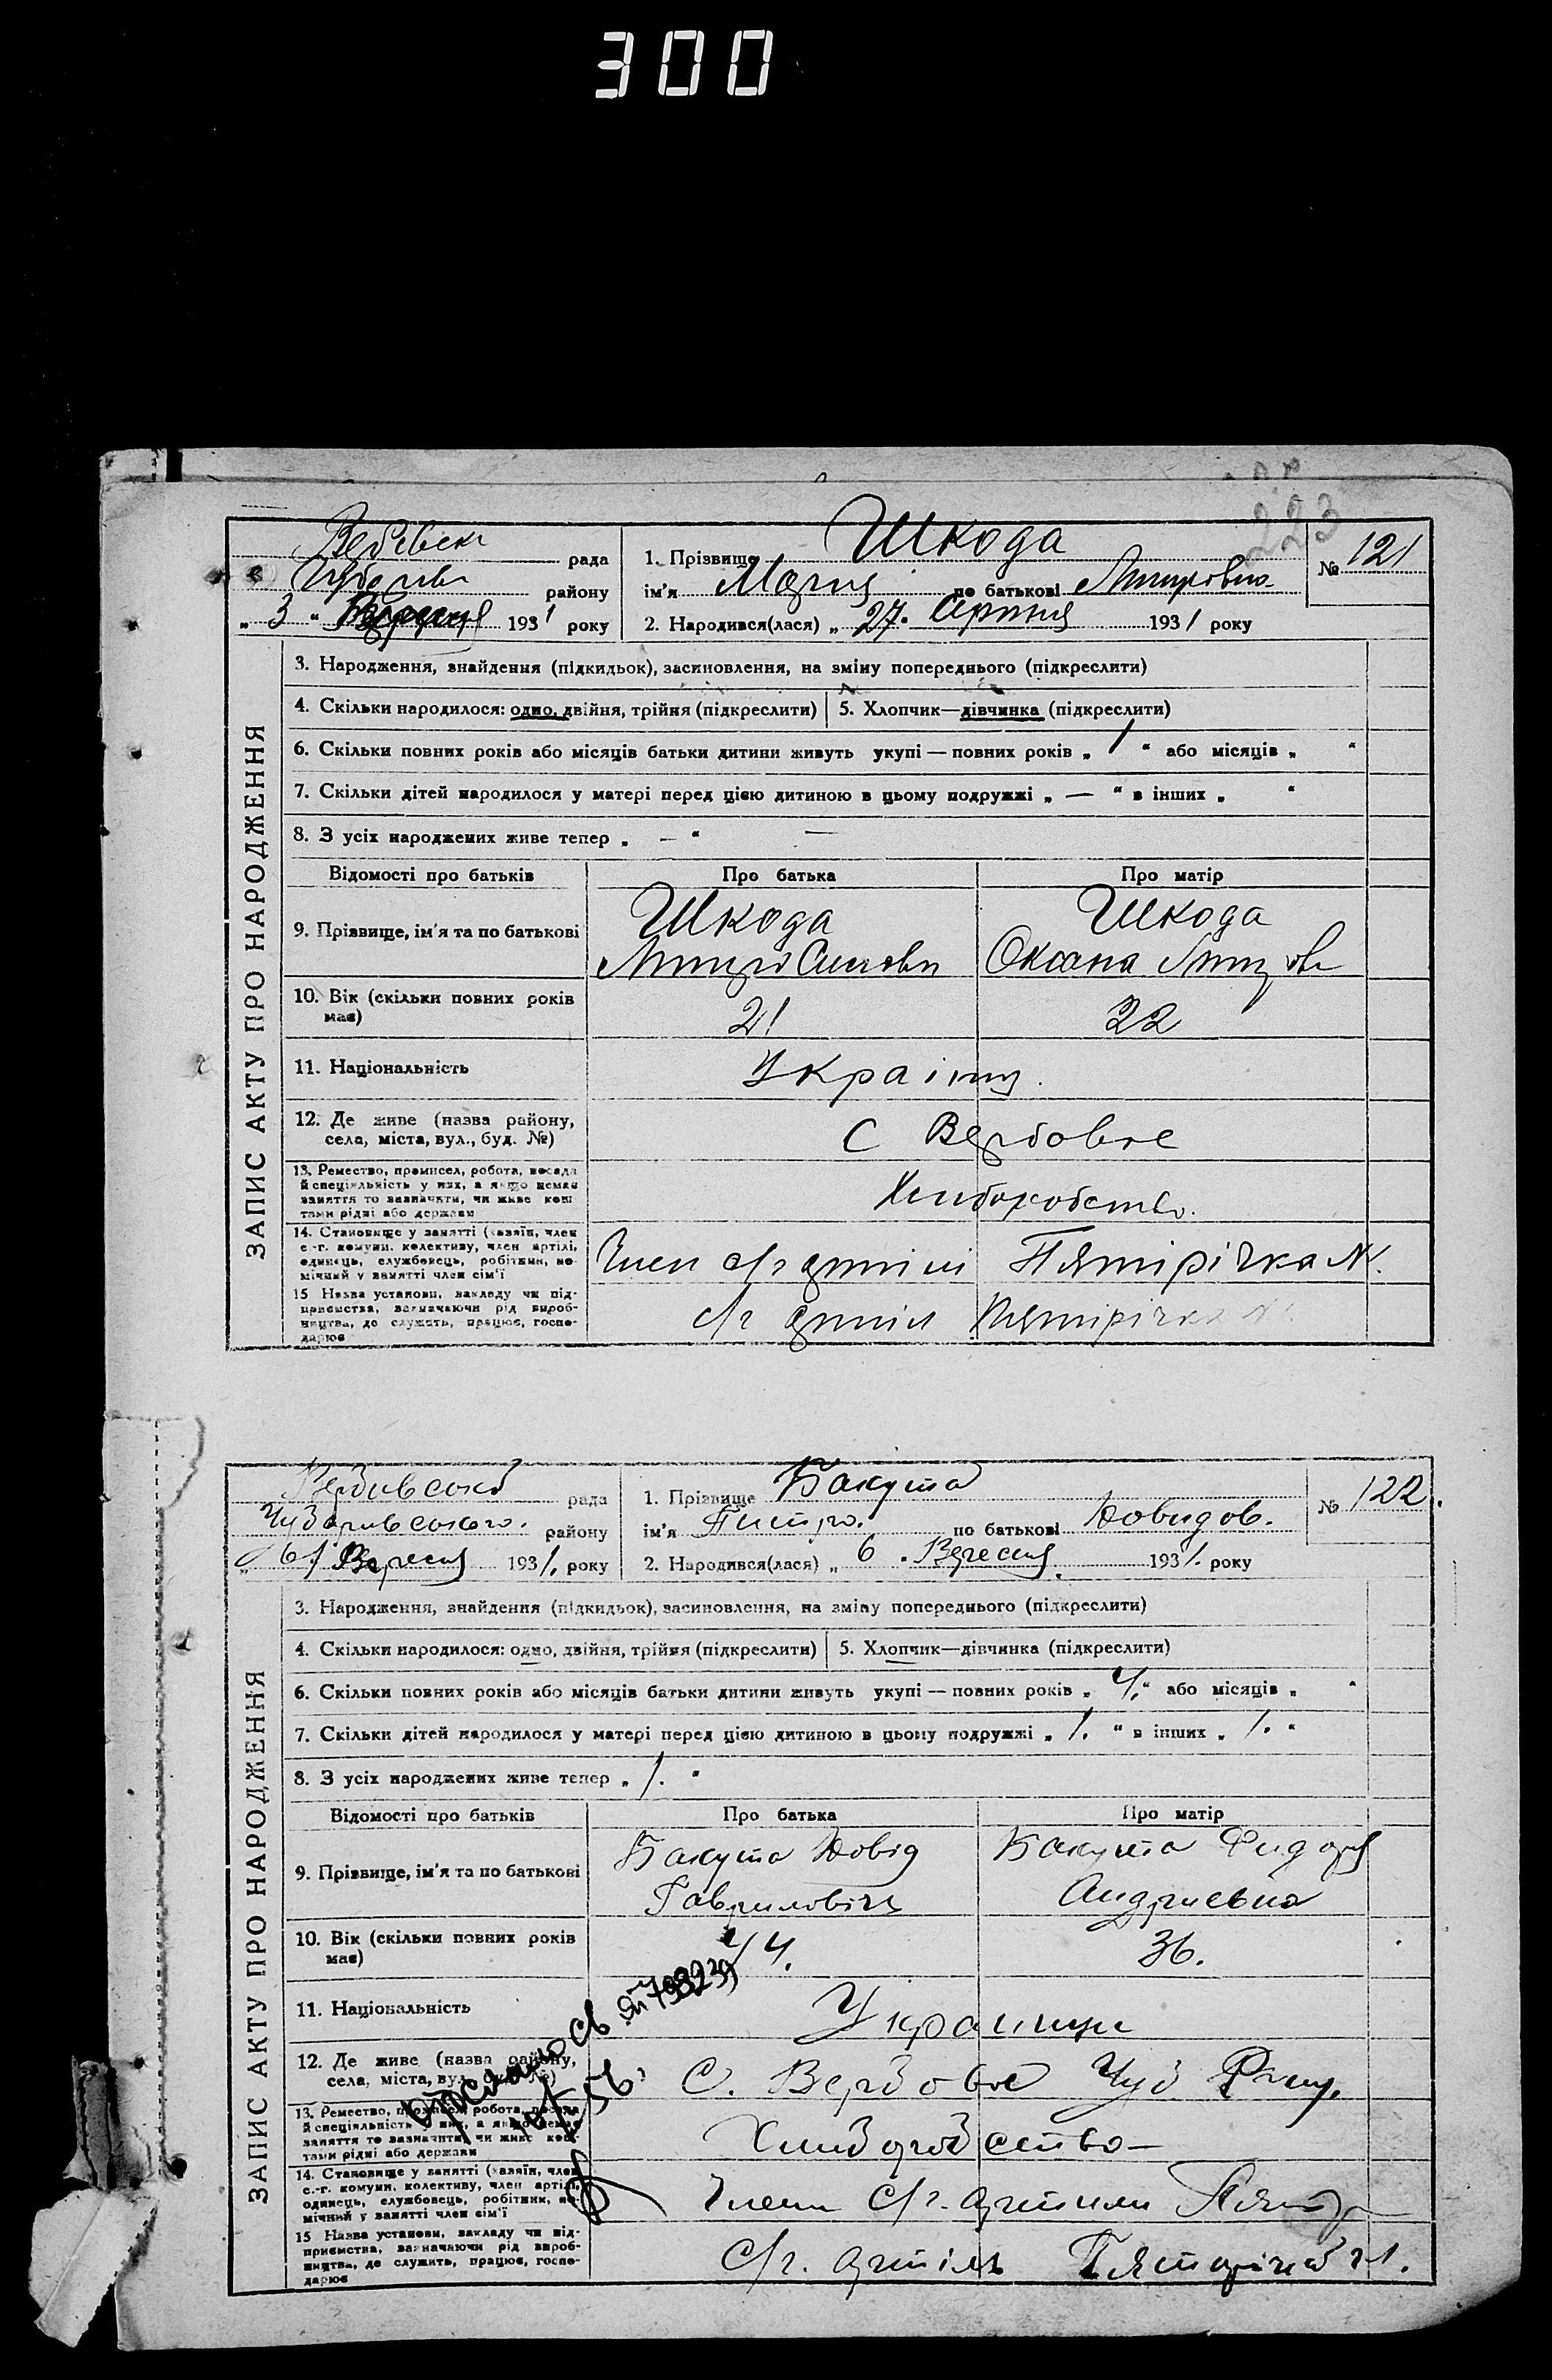 300
223
рада
району
„ 3 “ 1931 року
1. Прізвище Шкода
ім'я Мария по батькові
2. Народився(лася) „ 27. Серпня 1931 року
№ 121
ЗАПИС АКТУ ПРО НАРОДЖЕННЯ
3. Народження, знайдення (підкидьок), засиновлення, на зміну попереднього (підкреслити)
4. Скільки народилося: одно, двійня, трійня (підкреслити)
5. Хлопчик—дівчинка (підкреслити)
6. Скільки повних років або місяців батьки дитини живуть укупі — повних років „ 1 “ або місяців „ “
7. Скільки дітей народилося у матері перед цією дитиною в цьому подружжі „ — “ в інших „ “
8. З усіх народжених живе тепер „ — “ —
Відомості про батьків
Про батька
Про матір
9. Прізвище, ім'я та по батькові
Шкода
Шкода
Оксана
10. Вік (скільки повних років
має)
21
22
11. Національність
Україна
12. Де живе (назва району,
села, міста, вул., буд. №)
С Вербовое
13. Ремество, промисел, робота, посада
й спеціяльність у них, а якщо немає
заняття то зазначити, чи живе кош
тами рідні або держави
Хлиборобство.
14. Становище у занятті (хазяїн, член
с.-г. комуни, колективу, член артілі,
одинець, службовець, робітник, по
мічний у занятті член сім'ї
Член с/г артілі Пятирічка
15 Назва установи, закладу чи під-
приємства, зазначаючи рід вироб-
ництва, де служить, працює, госпо-
дарює
с/г артіл Пятирічка
рада
Чубарівського. району
„ 6 “ Вересня 1931. року
1. Прізвище Бакута
ім'я Питро. по батькові Довидов.
2. Народився(лася) „ 6 . Вересня 1931. року
№ 122.
ЗАПИС АКТУ ПРО НАРОДЖЕННЯ
3. Народження, знайдення (підкидьок), засиновлення, на зміну попереднього (підкреслити)
4. Скільки народилося: одно, двійня, трійня (підкреслити)
5. Хлопчик—дівчинка (підкреслити)
6. Скільки повних років або місяців батьки дитини живуть укупі — повних років „ 4. “ або місяців „ “
7. Скільки дітей народилося у матері перед цією дитиною в цьому подружжі „ 1. “ в інших „ 1. “
8. З усіх народжених живе тепер „ 1. “
Відомості про батьків
Про батька
Про матір
9. Прізвище, ім'я та по батькові
Бакута Довід
Гаврилович
Бакута Фидора
Андриевна
10. Вік (скільки повних років
має)
44.
36.
11. Національність
Украинци
12. Де живе (назва району,
села, міста, вул., буд. №)
С. Вербовое Чуб
13. Ремество, промисел, робота, посада
й спеціяльність у них, а якщо немає
заняття то зазначити, чи живе кош
тами рідні або держави
Хлиборобство—
14. Становище у занятті (хазяїн, член
с.-г. комуни, колективу, член артілі,
одинець, службовець, робітник, по
мічний у занятті член сім'ї
Члени с/г. артили
15 Назва установи, закладу чи під-
приємства, зазначаючи рід вироб-
ництва, де служить, працює, госпо-
дарює
С/г. артіль